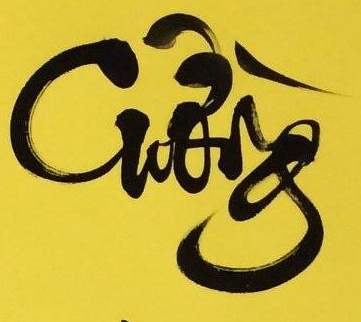 Cường